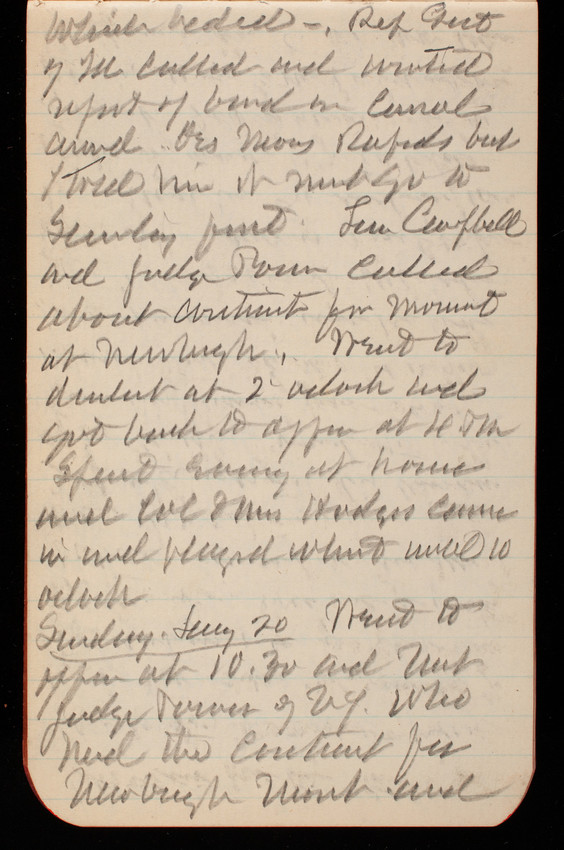 which
of Ill called and wanted
report of board on Canal
around Des Moines Rapids but
I told him it must go to
Genl Campbell
and Judge Power called
about contract for Monument
at Newburgh. Went to
dentist at 2 oclock and
got back to office at 4 Pm
Spent Evening at home
and Col & Mrs Hodges came
in and played whist until 10
oclock
Sunday. Jany 20 Went to
office at 10.30 and met
Judge Power of N.Y. who
had the contract for
Newburgh Mont and